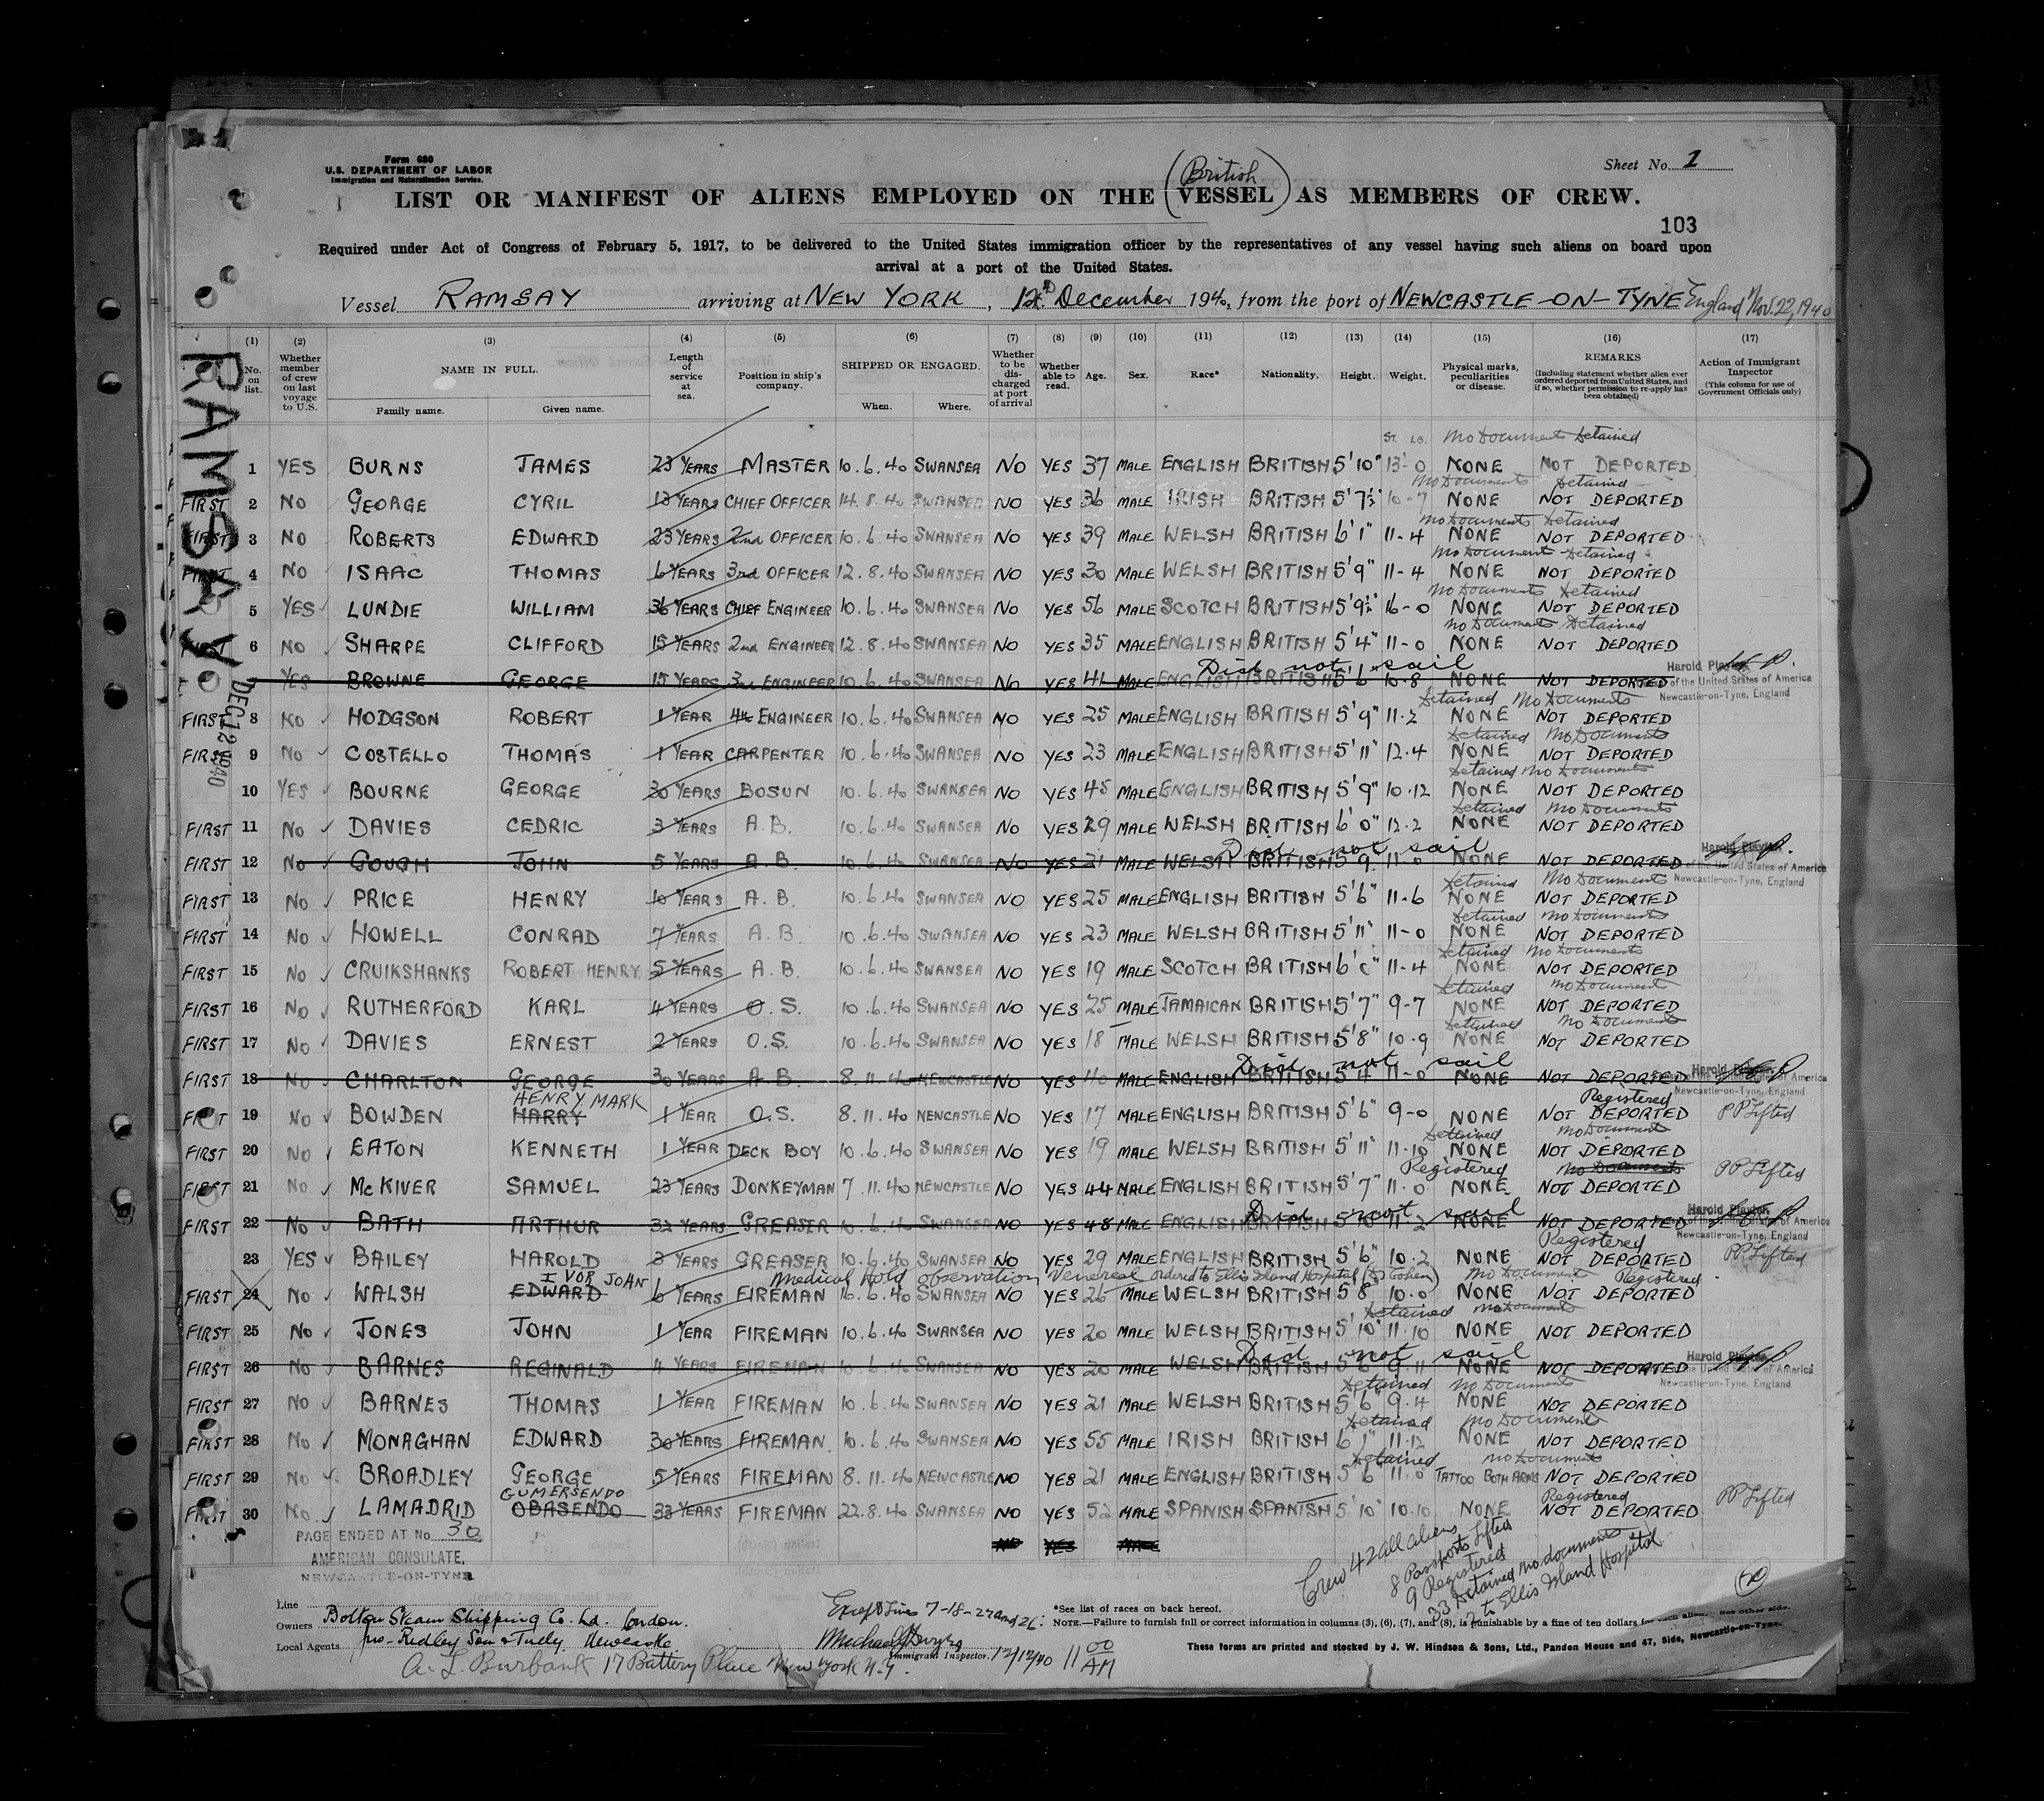 Form 680
U.S. DEPARTMENT OF LABOR
Immigration and Naturalization Service.
Sheet No. 1
(British)
LIST OR MANIFEST OF ALIENS EMPLOYED ON THE (VESSEL) AS MEMBERS OF CREW.
103
Required under Act of Congress of February 5, 1917, to be delivered to the United States immigration officer by the representatives of any vessel having such aliens on board upon
arrival at a port of the United States.
Vessel RAMSAY arriving at NEW YORK, 12 December 1940, from the port of NEWCASTLE-ON-TYNE England Nov. 22, 1940
RAMSAY
DEC 12 1940
(1) No. on list.
(2) Whether member of crew on last voyage to U.S.
(3) NAME IN FULL. Family name. Given name.
(4) Length of service at sea.
(5) Position in ship's company.
(6) SHIPPED OR ENGAGED. When. Where.
(7) Whether to be discharged at port of arrival
(8) Whether able to read.
(9) Age.
(10) Sex.
(11) Race*
(12) Nationality.
(13) Height.
(14) Weight.
(15) Physical marks, peculiarities or disease.
(16) REMARKS (Including statement whether alien ever ordered deported from United States, and if so, whether permission to re-apply has been obtained)
(17) Action of Immigrant Inspector (This column for use of Government Officials only)
ST. LB. No Documents Detained
1 YES BURNS JAMES 23 YEARS MASTER 10.6.40 SWANSEA NO YES 37 MALE ENGLISH BRITISH 5'10" 13-0 NONE NOT DEPORTED
No Documents Detained
FIRST 2 NO GEORGE CYRIL 13 YEARS CHIEF OFFICER 14.8.40 SWANSEA NO YES 36 MALE IRISH BRITISH 5'7½" 10-7 NONE NOT DEPORTED
No Documents Detained
FIRST 3 NO ROBERTS EDWARD 23 YEARS 2nd OFFICER 10.6.40 SWANSEA NO YES 39 MALE WELSH BRITISH 6'1" 11-4 NONE NOT DEPORTED
No Document Detained
FIRST 4 NO ISAAC THOMAS 6 YEARS 3rd OFFICER 12.8.40 SWANSEA NO YES 30 MALE WELSH BRITISH 5'9" 11-4 NONE NOT DEPORTED
No Documents Detained
5 YES LUNDIE WILLIAM 36 YEARS CHIEF ENGINEER 10.6.40 SWANSEA NO YES 56 MALE SCOTCH BRITISH 5'9½" 16-0 NONE NOT DEPORTED
No Documents Detained
FIRST 6 NO SHARPE CLIFFORD 15 YEARS 2nd ENGINEER 12.8.40 SWANSEA NO YES 35 MALE ENGLISH BRITISH 5'4" 11-0 NONE NOT DEPORTED
Did not sail Harold Playter
7 YES BROWNE GEORGE 15 YEARS 3rd ENGINEER 10.6.40 SWANSEA NO YES 41 MALE ENGLISH BRITISH 5'6" 10.8 NONE NOT DEPORTED of the United States of America
Newcastle-on-Tyne, England
Detained No Documents
FIRST 8 NO HODGSON ROBERT 1 YEAR 4th ENGINEER 10.6.40 SWANSEA NO YES 25 MALE ENGLISH BRITISH 5'9" 11.2 NONE NOT DEPORTED
Detained No Documents
FIRST 9 NO COSTELLO THOMAS 1 YEAR CARPENTER 10.6.40 SWANSEA NO YES 23 MALE ENGLISH BRITISH 5'11" 12.4 NONE NOT DEPORTED
Detained No Documents
10 YES BOURNE GEORGE 30 YEARS BOSUN 10.6.40 SWANSEA NO YES 45 MALE ENGLISH BRITISH 5'9" 10.12 NONE NOT DEPORTED
Detained No Documents
FIRST 11 NO DAVIES CEDRIC 3 YEARS A.B. 10.6.40 SWANSEA NO YES 29 MALE WELSH BRITISH 6'0" 12.2 NONE NOT DEPORTED
Did not sail Harold Playter
FIRST 12 NO GOUGH JOHN 5 YEARS A.B. 10.6.40 SWANSEA NO YES 21 MALE WELSH BRITISH 5'9" 11-0 NONE NOT DEPORTED of the United States of America
Newcastle-on-Tyne, England
Detained No Documents
FIRST 13 NO PRICE HENRY 10 YEARS A.B. 10.6.40 SWANSEA NO YES 25 MALE ENGLISH BRITISH 5'6" 11-6 NONE NOT DEPORTED
Detained No Documents
FIRST 14 NO HOWELL CONRAD 7 YEARS A.B. 10.6.40 SWANSEA NO YES 23 MALE WELSH BRITISH 5'11" 11-0 NONE NOT DEPORTED
Detained No Documents
FIRST 15 NO CRUIKSHANKS ROBERT HENRY 5 YEARS A.B. 10.6.40 SWANSEA NO YES 19 MALE SCOTCH BRITISH 6'0" 11-4 NONE NOT DEPORTED
Detained No Document
FIRST 16 NO RUTHERFORD KARL 4 YEARS O.S. 10.6.40 SWANSEA NO YES 25 MALE JAMAICAN BRITISH 5'7" 9-7 NONE NOT DEPORTED
Detained No Documents
FIRST 17 NO DAVIES ERNEST 2 YEARS O.S. 10.6.40 SWANSEA NO YES 18 MALE WELSH BRITISH 5'8" 10.9 NONE NOT DEPORTED
Did not sail Harold Playter
FIRST 18 NO CHARLTON GEORGE 30 YEARS A.B. 8.11.40 NEWCASTLE NO YES 40 MALE ENGLISH BRITISH 5'4" 11-0 NONE NOT DEPORTED of the United States of America
Newcastle-on-Tyne, England
HENRY MARK Registered
FIRST 19 NO BOWDEN HARRY 1 YEAR O.S. 8.11.40 NEWCASTLE NO YES 17 MALE ENGLISH BRITISH 5'6" 9-0 NONE NOT DEPORTED PP Lifted
Detained No Document
FIRST 20 NO EATON KENNETH 1 YEAR DECK BOY 10.6.40 SWANSEA NO YES 19 MALE WELSH BRITISH 5'11" 11.10 NONE NOT DEPORTED
Registered No Documents
FIRST 21 NO McKIVER SAMUEL 23 YEARS DONKEYMAN 7.11.40 NEWCASTLE NO YES 44 MALE ENGLISH BRITISH 5'7" 11.0 NONE NOT DEPORTED PP Lifted
Did not sail Harold Playter
FIRST 22 NO BATH ARTHUR 32 YEARS GREASER 10.6.40 SWANSEA NO YES 48 MALE ENGLISH BRITISH 5'10" 11-2 NONE NOT DEPORTED of the United States of America
Newcastle-on-Tyne, England
Registered
23 YES BAILEY HAROLD 3 YEARS GREASER 10.6.40 SWANSEA NO YES 29 MALE ENGLISH BRITISH 5'6" 10.2 NONE NOT DEPORTED PP Lifted
IVOR JOHN Medical Hold observation Venereal ordered to Ellis Island Hospital (Dr Cohen) No Document Registered
FIRST 24 NO WALSH EDWARD 6 YEARS FIREMAN 16.6.40 SWANSEA NO YES 26 MALE WELSH BRITISH 5'8 10.0 NONE NOT DEPORTED
Detained No Documents
FIRST 25 NO JONES JOHN 1 YEAR FIREMAN 10.6.40 SWANSEA NO YES 20 MALE WELSH BRITISH 5'10" 11.10 NONE NOT DEPORTED
Did not sail Harold Playter
FIRST 26 NO BARNES REGINALD 4 YEARS FIREMAN 10.6.40 SWANSEA NO YES 20 MALE WELSH BRITISH 5'6" 9.11 NONE NOT DEPORTED of the United States of America
Newcastle-on-Tyne, England
Detained No Documents
FIRST 27 NO BARNES THOMAS 1 YEAR FIREMAN 10.6.40 SWANSEA NO YES 21 MALE WELSH BRITISH 5'6" 9.4 NONE NOT DEPORTED
Detained No Documents
FIRST 28 NO MONAGHAN EDWARD 30 YEARS FIREMAN 10.6.40 SWANSEA NO YES 55 MALE IRISH BRITISH 6'1" 11.12 NONE NOT DEPORTED
Detained No Documents
FIRST 29 NO BROADLEY GEORGE 5 YEARS FIREMAN 8.11.40 NEWCASTLE NO YES 21 MALE ENGLISH BRITISH 5'6" 11.0 TATTOO BOTH ARMS NOT DEPORTED
GUMERSENDO Registered
FIRST 30 NO LAMADRID OBASENDO 33 YEARS FIREMAN 22.8.40 SWANSEA NO YES 52 MALE SPANISH SPANISH 5'10" 10.10 NONE NOT DEPORTED PP Lifted
PAGE ENDED AT No. 30 NO YES MALE
AMERICAN CONSULATE,
NEWCASTLE-ON-TYNE
Crew 42 all aliens
8 Passports Lifted
9 Registered
33 Detained no documents
2 to Ellis Island Hospital
Line
Owners Bolton Steam Shipping Co. Ld. London.
Local Agents pro- Ridley Son & Tully Newcastle
A. L. Burbank 17 Battery Place New York N.Y.
Except Lines 7-18-22 and 26:
Immigrant Inspector. 12/12/40 11 00 AM
*See list of races on back hereof.
NOTE.—Failure to furnish full or correct information in columns (3), (6), (7), and (8), is punishable by a fine of ten dollars for each alien. See other side.
These forms are printed and stocked by J. W. Hindson & Sons, Ltd., Pandon House and 47, Side, Newcastle-on-Tyne.